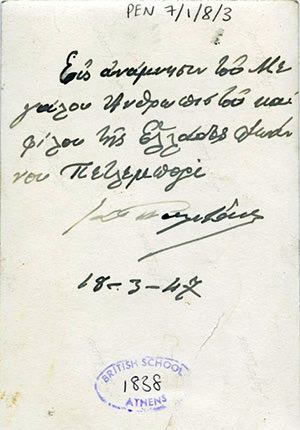 PEN 7/1/8/3
Εἰς ἀνάμνησιν τοῦ Με
γάλου Ἀνθρωπιστοῦ καὶ
φίλου τῆς Ἑλλάδος
νου Πετλεμπρι
18-3-47
BRITISH SCHOOL
1838
ATHENS